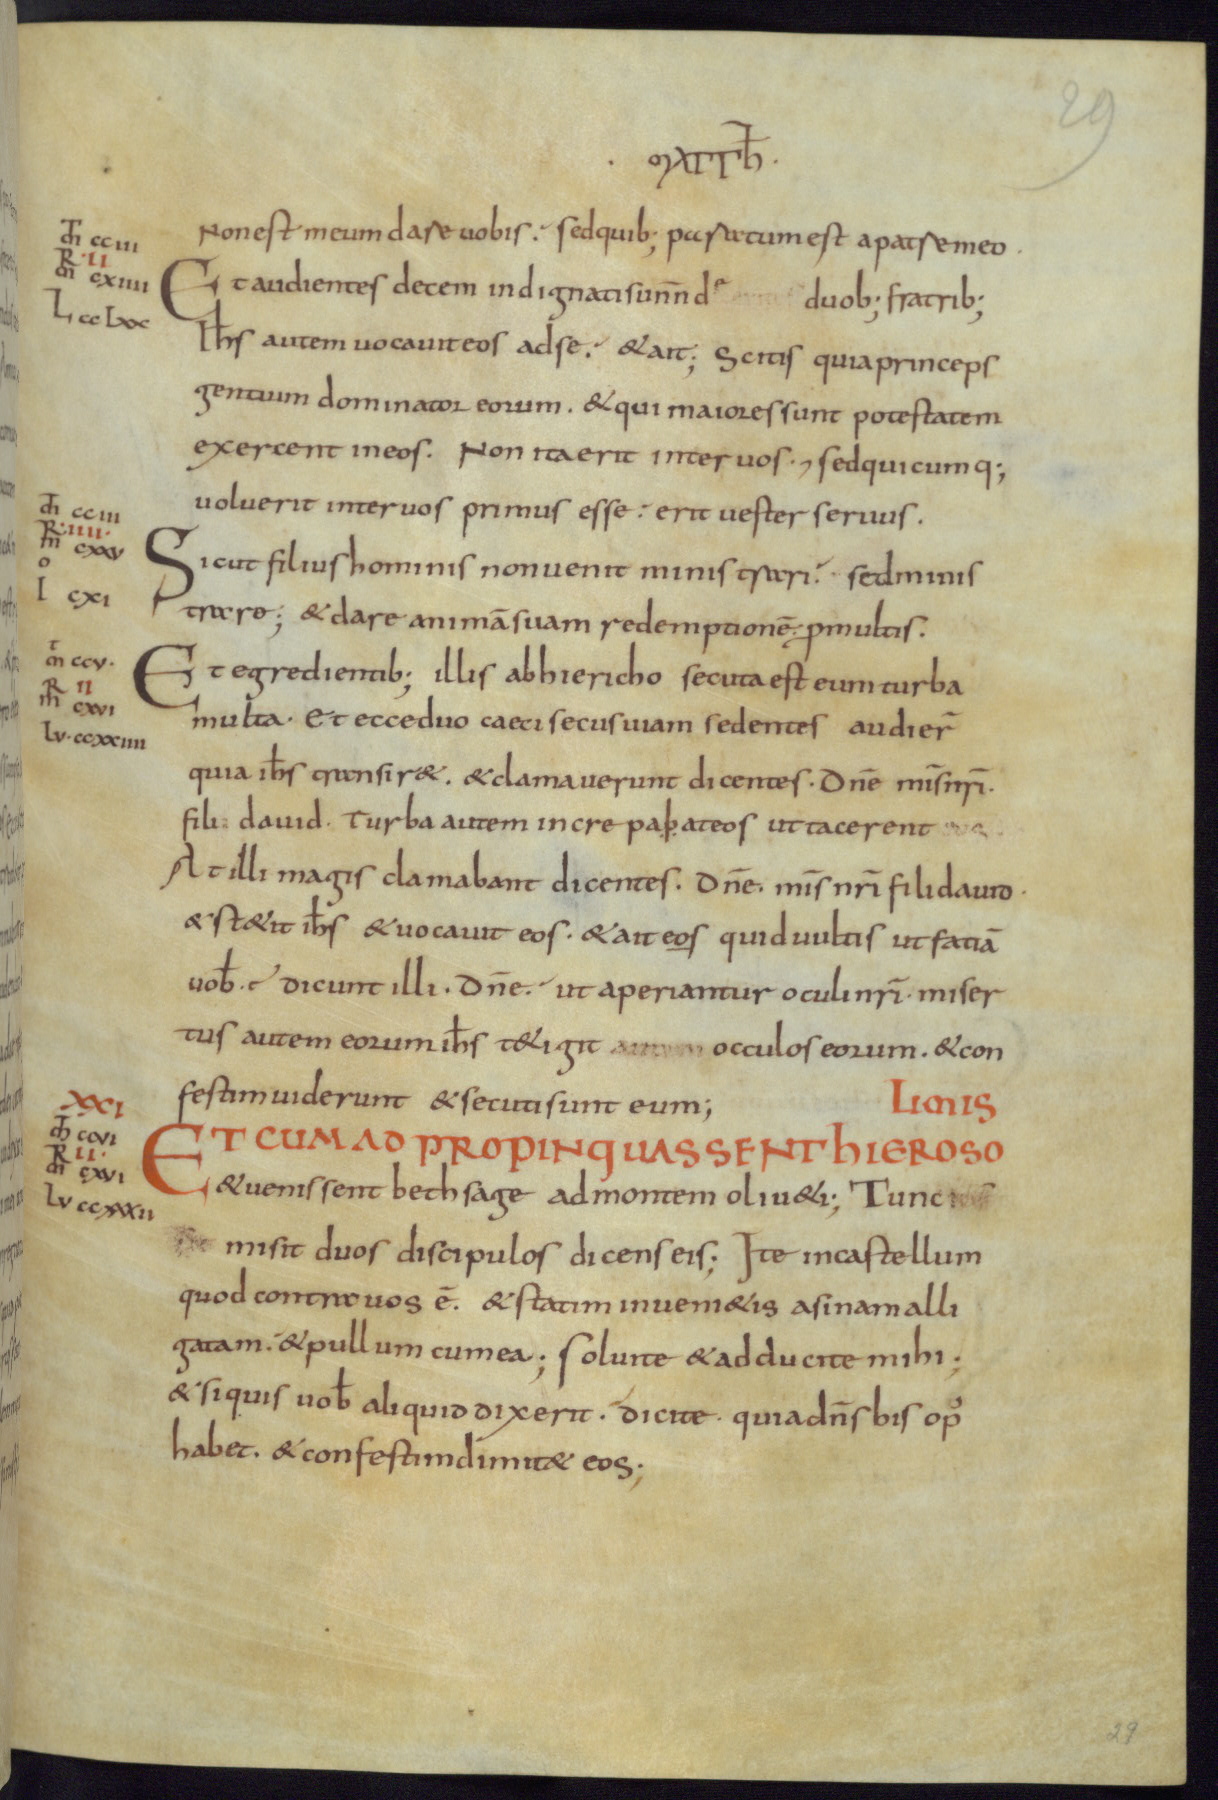 29
· MATTH̄ ·
Non est meum dare uobis. sed quib; paratum est a patre meo.
Et audientes decem indignati sun̄n d duob; fratrib;
Ih̄s autem uocauit eos ad se. & ait; Scitis quia princeps
gentium dominator eorum. & qui maiores sunt potestatem
exercent in eos. Non ita erit inter uos. sed quicumq;
uoluerit inter uos primus esse. erit uester seruus.
Sicut filius hominis non uenit ministrari. sed minis
trare; & dare animā suam redemptionē. p multis.
Et egredientib; illis ab hiericho secuta est eum turba
multa. Et ecce duo caeci secus uiam sedentes audier̄
quia ih̄s transir&. & clamauerunt dicentes. Dn̄e mis̄ nr̄i.
fili dauid. Turba autem increpabat eos ut tacerent
At illi magis clamabant dicentes. Dn̄e. mis̄ nr̄i fili dauid.
& st&it ih̄s & uocauit eos. & ait eos quid uultis ut fatiā
uob̄. Dicunt illi. Dn̄e. ut aperiantur oculi nr̄i. miser
tus autem eorum ih̄s t&igit occulos eorum. & con
festim uiderunt & secuti sunt eum;
LIMIS
ET CUM ADPROPINQUASSENT HIEROSO
& uenissent bethfage ad montem oliu&i; Tunc
misit duos discipulos dicens eis; Ite in castellum
quod contra uos ē. & statim inueni&is asinam alli
gatam. & pullum cum ea; Soluite & adducite mihi;
& si quis uob̄ aliquid dixerit. dicite. quia dn̄s bis op̄
habet. & confestim dimit& eos;
m̄ cciii
R II
m̄ cxiiii
L cclxx
m̄ cciii
R IIII
m̄ cxxv
o
l cxi
m̄ ccv.
R II
m̄ cxvi
Lv. ccxxiiii
XXI
m̄ ccvi
R II
m̄ cxvi
Lv ccxxxii
29